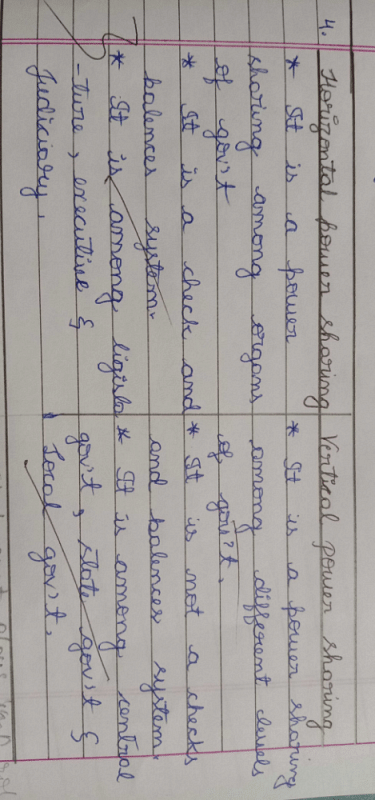 4. Horizontal power sharing Vertical power sharing
* It is a power
sharing among organs
of gov't
* It is a check and
balances system.
* It is among ligisla
-ture, executive &
Judiciary.
* It is a power sharing
among different levels
of gov't.
* It is not a checks
and balences system.
* It is among central
gov't, state gov't &
Local gov't.